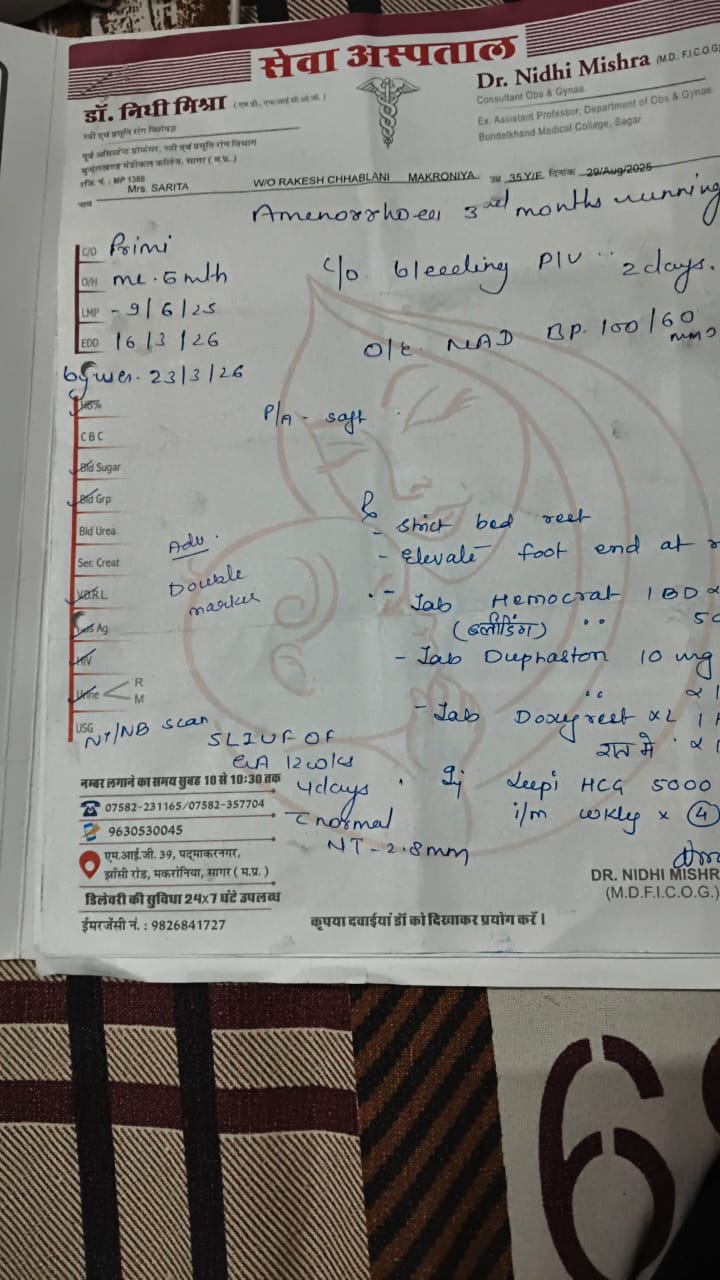 सेवा अस्पताल
डॉ. निधी मिश्रा (एम.डी., एफ.आई.सी.ओ.जी.)
स्त्री एवं प्रसूति रोग विशेषज्ञ
पूर्व असिस्टेन्ट प्रोफेसर, स्त्री एवं प्रसूति रोग विभाग
बुन्देलखण्ड मेडीकल कॉलेज, सागर (म.प्र.)
रजि. नं. : MP 1386
Dr. Nidhi Mishra (M.D. F.I.C.O.G
Consultant Obs & Gynae.
Ex. Assistant Professor, Department of Obs & Gynae.
Bundelkhand Medical Collage, Sagar
नाम Mrs. SARITA W/O RAKESH CHHABLANI MAKRONIYA उम्र 35 Y/F दिनांक 29/Aug/2025
Amenorrhoea 3rd months running
C/O Primi
O/H ML. 5 mth
LMP - 9/6/25
EDD 16/3/26
by usg. 23/3/26
c/o bleeding P/V 2 days.
O/E NAD BP. 100/60
P/A - soft
Hb%
CBC
Bld Sugar
Bld Grp
Bld Urea
Ser. Creat
VDRL
Ag
HIV
Urine < R
M
USG
Adv.
Double
marker
NT/NB scan
SLIUF OF
GA 12wks
4days
c normal
NT - 2.8mm
- Strict bed rest
- Elevate foot end at
- Tab Hemocrat 1 BD
(ब्लीडिंग)
- Tab Duphaston 10 mg
- Tab Doxyreet XL
रात मे
Inj HCG 5000
i/m wkly x 4
DR. NIDHI MISHR
(M.D.F.I.C.O.G.)
नम्बर लगाने का समय सुबह 10 से 10:30 तक
07582-231165/07582-357704
9630530045
एम.आई.जी. 39, पद्माकरनगर,
झाँसी रोड, मकरोनिया, सागर (म.प्र.)
डिलेवरी की सुविधा 24x7 घंटे उपलब्ध
ईमरजेंसी नं. : 9826841727
कृपया दवाईयां डॉ को दिखाकर प्रयोग करें।